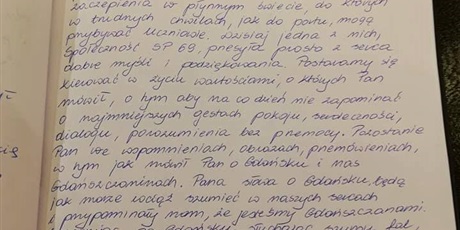 zaczepienia w płynnym świecie, do których
w trudnych chwilach, jak do portu, mogą
przybywać Uczniowie. Dzisiaj jedna z nich,
Społeczność SP 69, przesyła prosto z serca
dobre myśli i podziękowania. Postaramy się
kierować w życiu wartościami, o których Pan
mówił, o tym aby na co dzień nie zapominać
o najmniejszych gestach pokoju, serdeczności,
dialogu, porozumienia bez przemocy. Pozostanie
Pan we wspomnieniach, obrazach, przemówieniach,
w tym jak mówił Pan o Gdańsku i nas
Gdańszczaninach. Pana słowa o Gdańsku, będą
jak morze wciąż szumieć w naszych sercach
i przypominały nam, że jesteśmy Gdańszczanami.
Gdańsku, słuchając szumu fal,